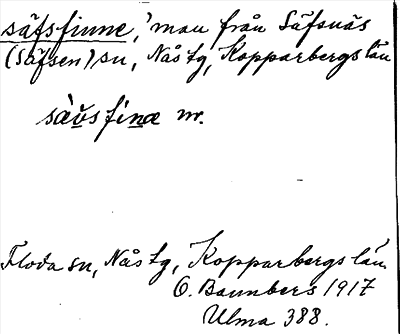 säfsfinne, 'man från Säfsnäs
(Säfsen) sn, Nås tg, Kopparbergs län
sὰvsfinæ nr.
Floda sn, Nås tg, Kopparbergs län.
O. Bannbers 1917
Ulma 388.